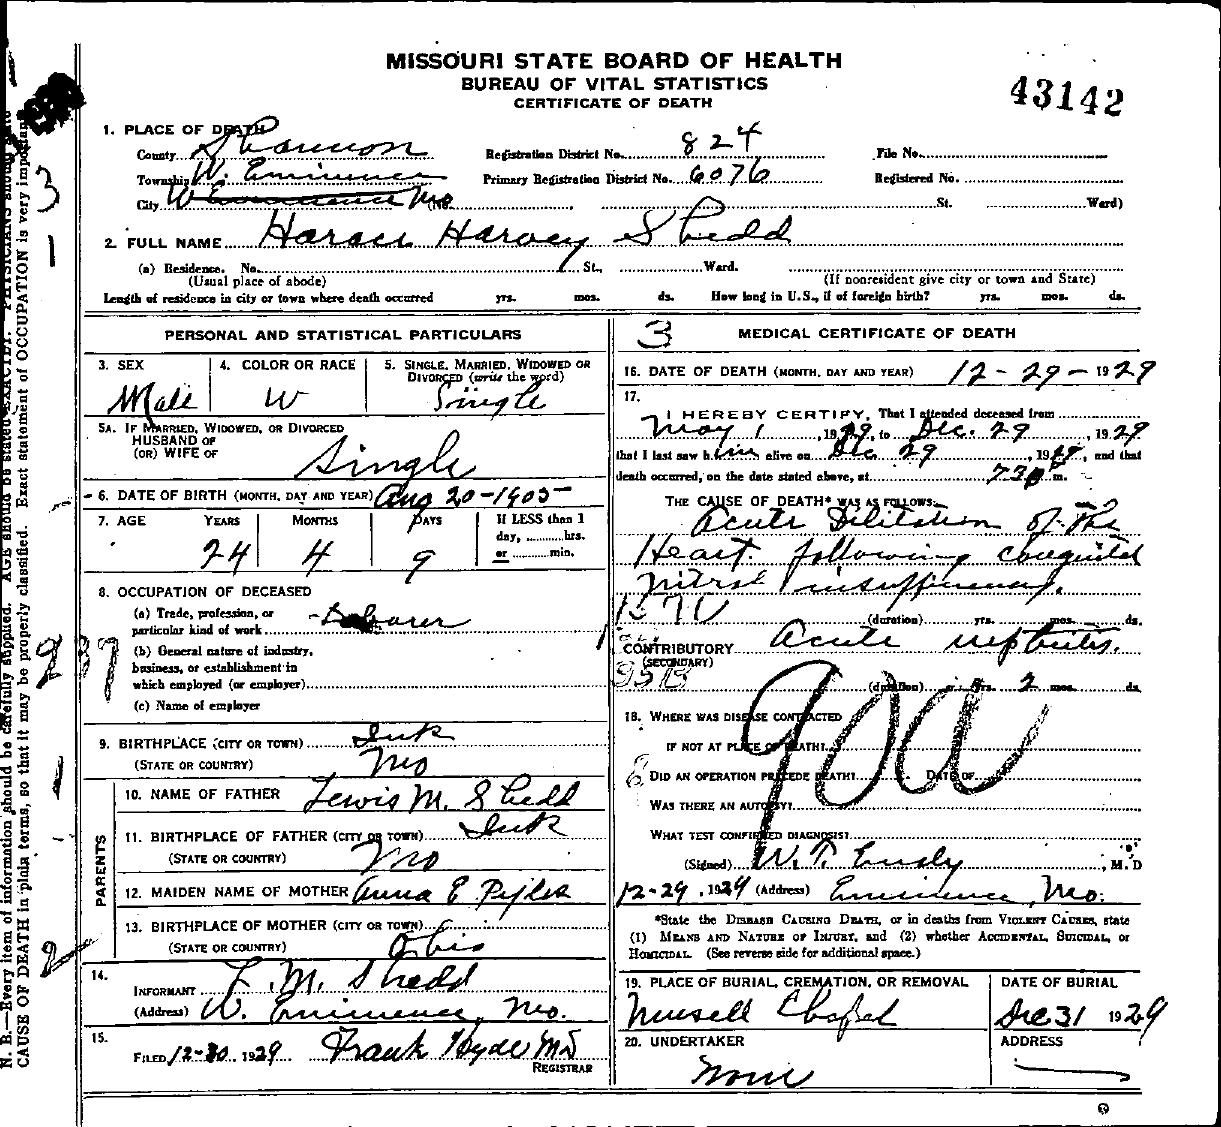 MISSOURI STATE BOARD OF HEALTH
BUREAU OF VITAL STATISTICS
CERTIFICATE OF DEATH
43142
1. PLACE OF DEATH
County Shannon Registration District No. 824 File No.
Township W. Eminence Primary Registration District No. 6076 Registered No.
City W Eminence Mo (No. , St. Ward)
2. FULL NAME Horace Harvey Shedd
(a) Residence. No. St., Ward.
(Usual place of abode) (If nonresident give city or town and State)
Length of residence in city or town where death occurred yrs. mos. ds. How long in U.S., if of foreign birth? yrs. mos. ds.
PERSONAL AND STATISTICAL PARTICULARS
3. SEX 4. COLOR OR RACE 5. SINGLE, MARRIED, WIDOWED OR
DIVORCED (write the word)
Male W Single
5A. IF MARRIED, WIDOWED, OR DIVORCED
HUSBAND OF
(OR) WIFE OF Single
6. DATE OF BIRTH (MONTH, DAY AND YEAR) Aug 20-1905
7. AGE YEARS MONTHS DAYS If LESS than 1
day, hrs.
or min.
24 4 9
8. OCCUPATION OF DECEASED
(a) Trade, profession, or
particular kind of work Laborer
(b) General nature of industry,
business, or establishment in
which employed (or employer)
(c) Name of employer
9. BIRTHPLACE (CITY OR TOWN) Ink
(STATE OR COUNTRY) Mo
PARENTS
10. NAME OF FATHER Lewis M. Shedd
11. BIRTHPLACE OF FATHER (CITY OR TOWN) Ink
(STATE OR COUNTRY) Mo
12. MAIDEN NAME OF MOTHER Anna E Pyles
13. BIRTHPLACE OF MOTHER (CITY OR TOWN)
(STATE OR COUNTRY) Ohio
14.
INFORMANT L. M. Shedd
(Address) W. Eminence, Mo.
15.
FILED 12-30, 1929 Frank Hyde MD
REGISTRAR
3 MEDICAL CERTIFICATE OF DEATH
16. DATE OF DEATH (MONTH, DAY AND YEAR) 12-29-1929
17.
I HEREBY CERTIFY, That I attended deceased from
May 1, 1929, to Dec. 29 1929
that I last saw him alive on Dec 29, 1929, and that
death occurred, on the date stated above, at 730 P m.
THE CAUSE OF DEATH* WAS AS FOLLOWS:
Acute Dilitation of the
Heart following congenital
Mitral insufficiency.
(duration) yrs. mos. ds.
CONTRIBUTORY Acute nephritis.
(SECONDARY)
(duration) yrs. 2 mos. ds.
90a
18. WHERE WAS DISEASE CONTRACTED
IF NOT AT PLACE OF DEATH?
DID AN OPERATION PRECEDE DEATH? DATE OF
WAS THERE AN AUTOPSY?
WHAT TEST CONFIRMED DIAGNOSIS?
(Signed) W. T. Eudy, M. D
12-29, 1929 (Address) Eminence, Mo.
*State the DISEASE CAUSING DEATH, or in deaths from VIOLENT CAUSES, state
(1) MEANS AND NATURE OF INJURY, and (2) whether ACCIDENTAL, SUICIDAL, or
HOMICIDAL. (See reverse side for additional space.)
19. PLACE OF BURIAL, CREMATION, OR REMOVAL DATE OF BURIAL
Chapel Dec 31 1929
20. UNDERTAKER ADDRESS
None
N. B.—Every item of information should be carefully supplied. AGE should be stated EXACTLY. PHYSICIANS should state
CAUSE OF DEATH in plain terms, so that it may be properly classified. Exact statement of OCCUPATION is very important.